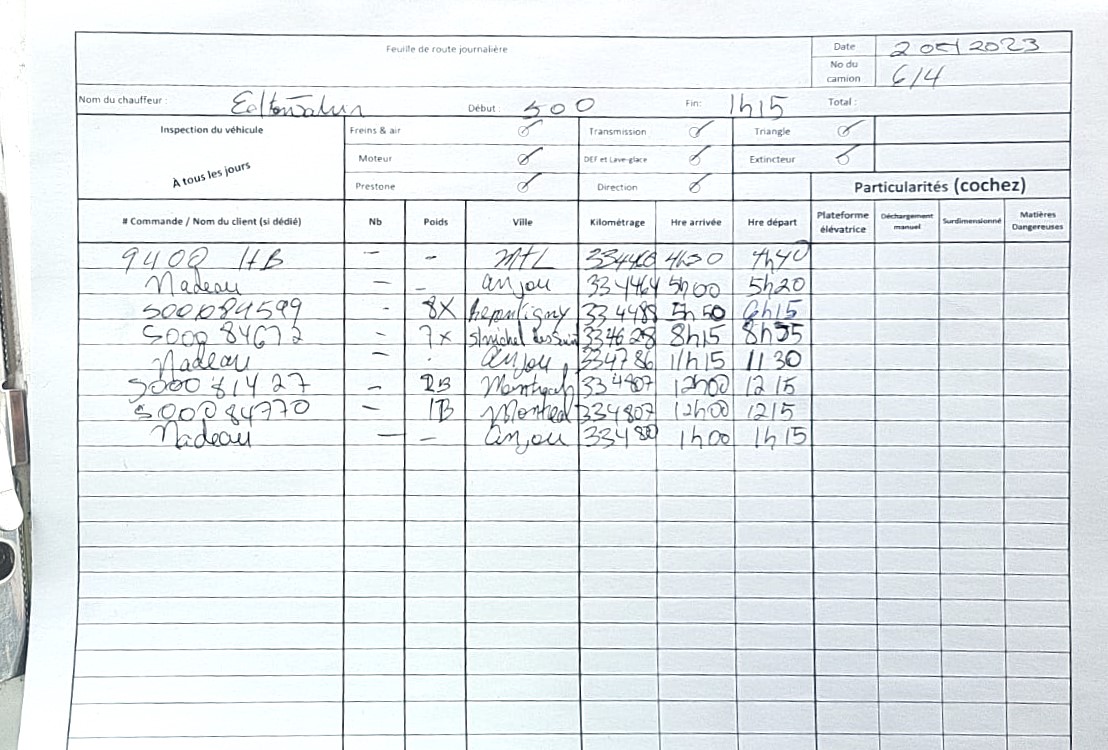 Feuille de route journalière
Date 2 oct 2023
No du camion 614
Nom du chauffeur : Début : 500 Fin: 1h15 Total :
Inspection du véhicule Freins & air Transmission Triangle
À tous les jours Moteur DEF et Lave-glace Extincteur
Prestone Direction Particularités (cochez)
# Commande / Nom du client (si dédié) Nb Poids Ville Kilométrage Hre arrivée Hre départ Plateforme élévatrice Déchargement manuel Surdimensionné Matières Dangereuses
9400 HB — - MTL 4h30 4h40
Nadeau - - anjou 334464 5h00 5h20
500084599 - 8X Repentigny 334488 5h50 6h15
500084672 - 7x St michel des Saint 334628 8h15 8h35
Nadeau - . anjou 334786 11h15 11 30
500081427 - 2B Montreal 334807 12h00 12 15
500084770 — 1B Montreal 334807 12h00 1215
Nadeau — - anjou 1h00 1h15